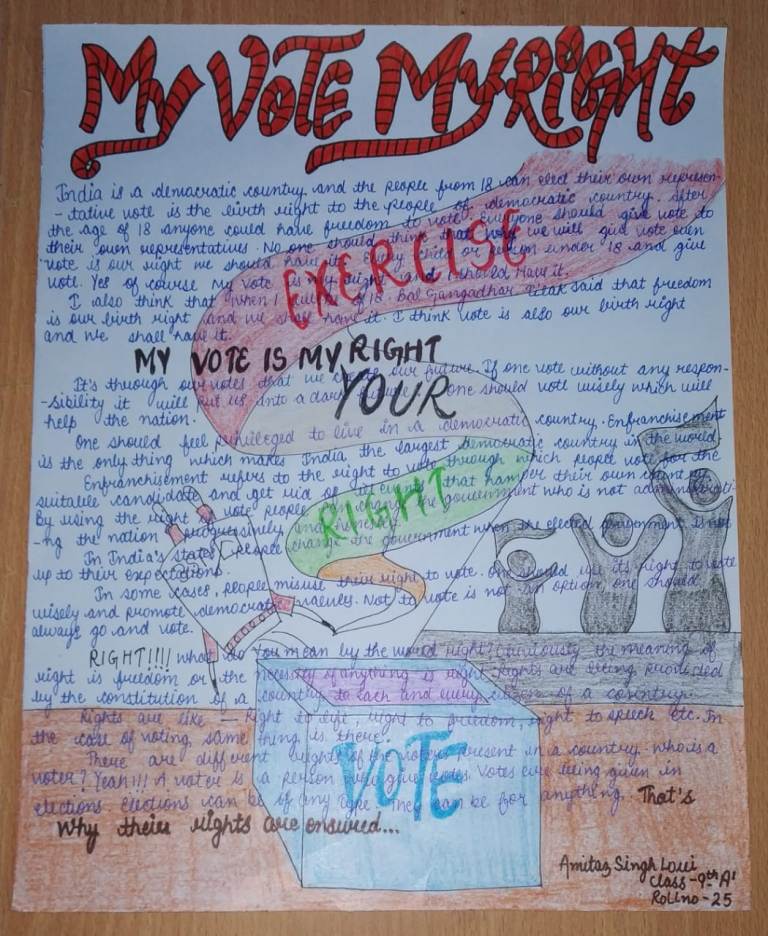 MY VOTE MY RIGHT
India is a democratic country and the people from 18 can elect their own represen-
-tative vote is the birth right to the people of democratic country. After
the age of 18 anyone could have freedom to vote. Everyone should give vote to
their own representatives. No one should think that why we will give vote even
vote is our right we should have it. every child or person under 18 and give
vote. Yes of course my vote is my right and I should have it.
EXERCISE
I also think that when I of 18. Bal Gangadhar Tilak said that freedom
is our birth right and we shall have it. I think vote is also our birth right
and we shall have it.
MY VOTE IS MY RIGHT
It's through our votes that we create our future. If one vote without any respon-
-sibility it will put us into a dark future. One should vote wisely which will
help the nation.
YOUR
One should feel privileged to live in a democratic country. Enfranchisement
is the only thing which makes India the largest democratic country in the world.
Enfranchisement refers to the right to vote through which people vote for the
suitable candidate and get rid of that hamper their own country.
By using the right of vote people can change the government who is not administrati-
-ng the nation and
RIGHT
In India's states people change the government when the elected is not
up to their expectations.
In some cases, people misuse their right to vote. One should use its right to vote
wisely and promote democratic values. Not to vote is not an option, one should
always go and vote.
RIGHT!!!! What do you mean by the word right? Obviously the meaning of
right is freedom or the necessity of anything is right. Rights are being provided
by the constitution of a country to each and every citizen of a country.
Rights are like - Right to life, right to freedom, right to speech etc. In
the case of voting, same thing is there.
There are different rights of the voters present in a country. Who is a
voter? Yeah!!! A voter is a person who give votes. Votes are being given in
elections elections can be of any type. They can be for anything. That's
why their rights are ensured...
VOTE
Amitaz Singh Loui
Class-9th 'A'
Rollno-25